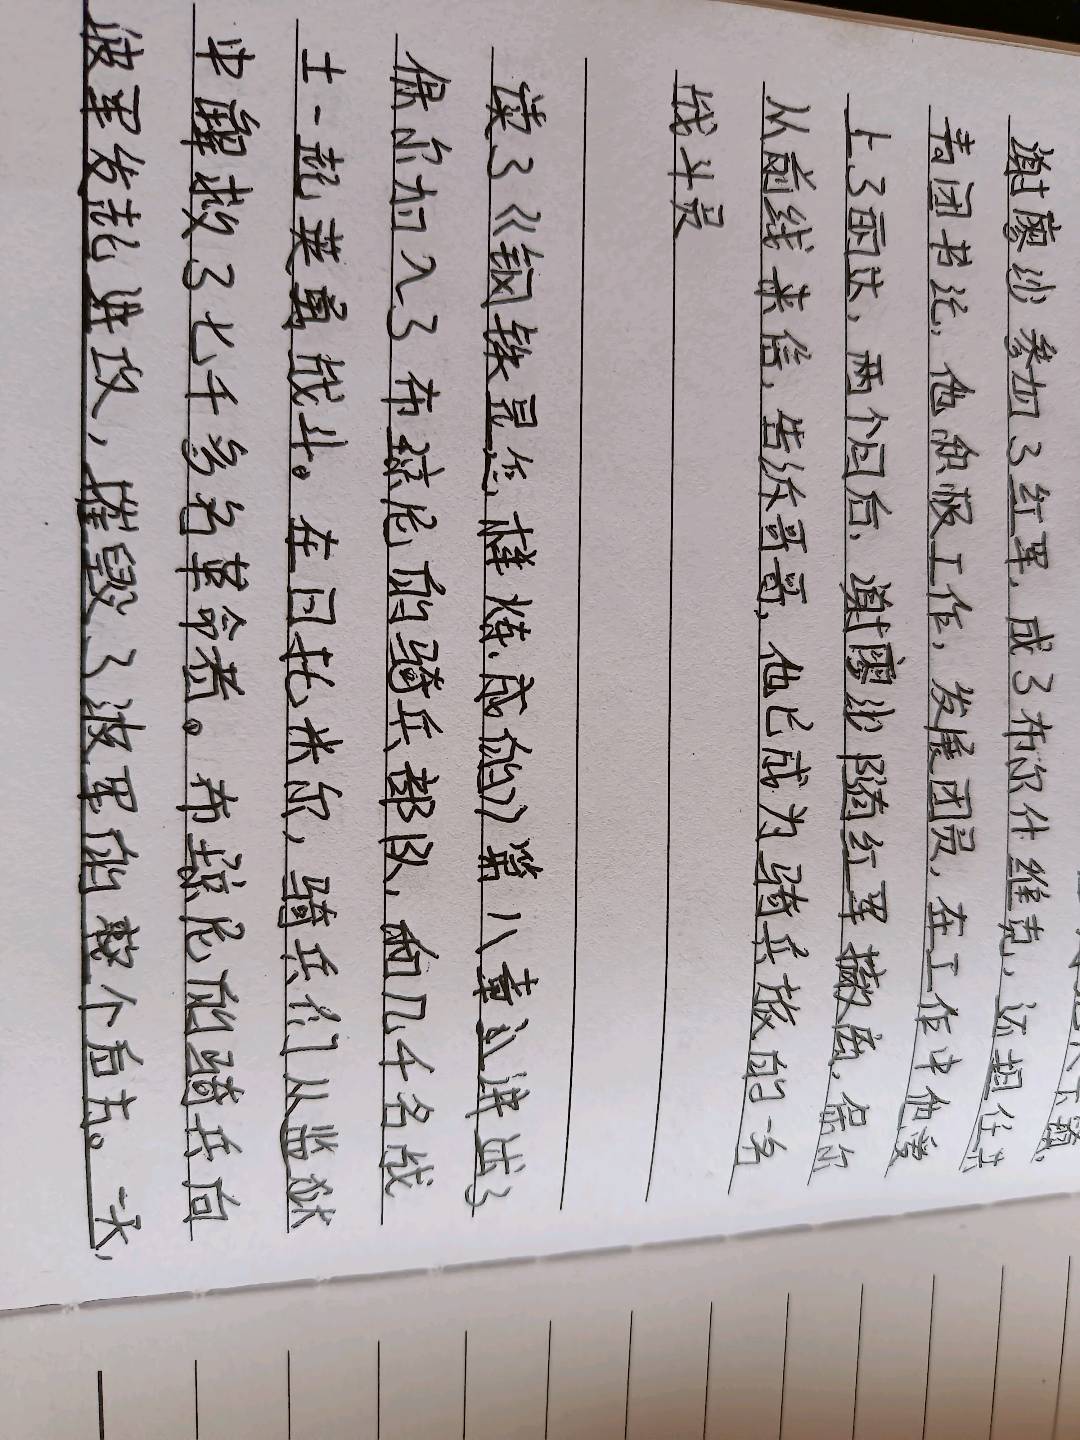 谢廖沙参加了红军,成了布尔什维克,还担任共
青团书记,他积极工作,发展团员,在工作中他爱
上了丽达,两个月后,谢廖沙随红军撤离,保尔
从前线来信,告诉哥哥,他已成为骑兵旅的一名
战斗员
读了《钢铁是怎样炼成的》第八章
保尔加入了布琼尼的骑兵部队,和几千名战
士一起英勇战斗。在日托米尔,骑兵们从监狱
中解救了七千多名革命者。布琼尼的骑兵向
波军发起进攻,摧毁了波军的整个后方。一天,